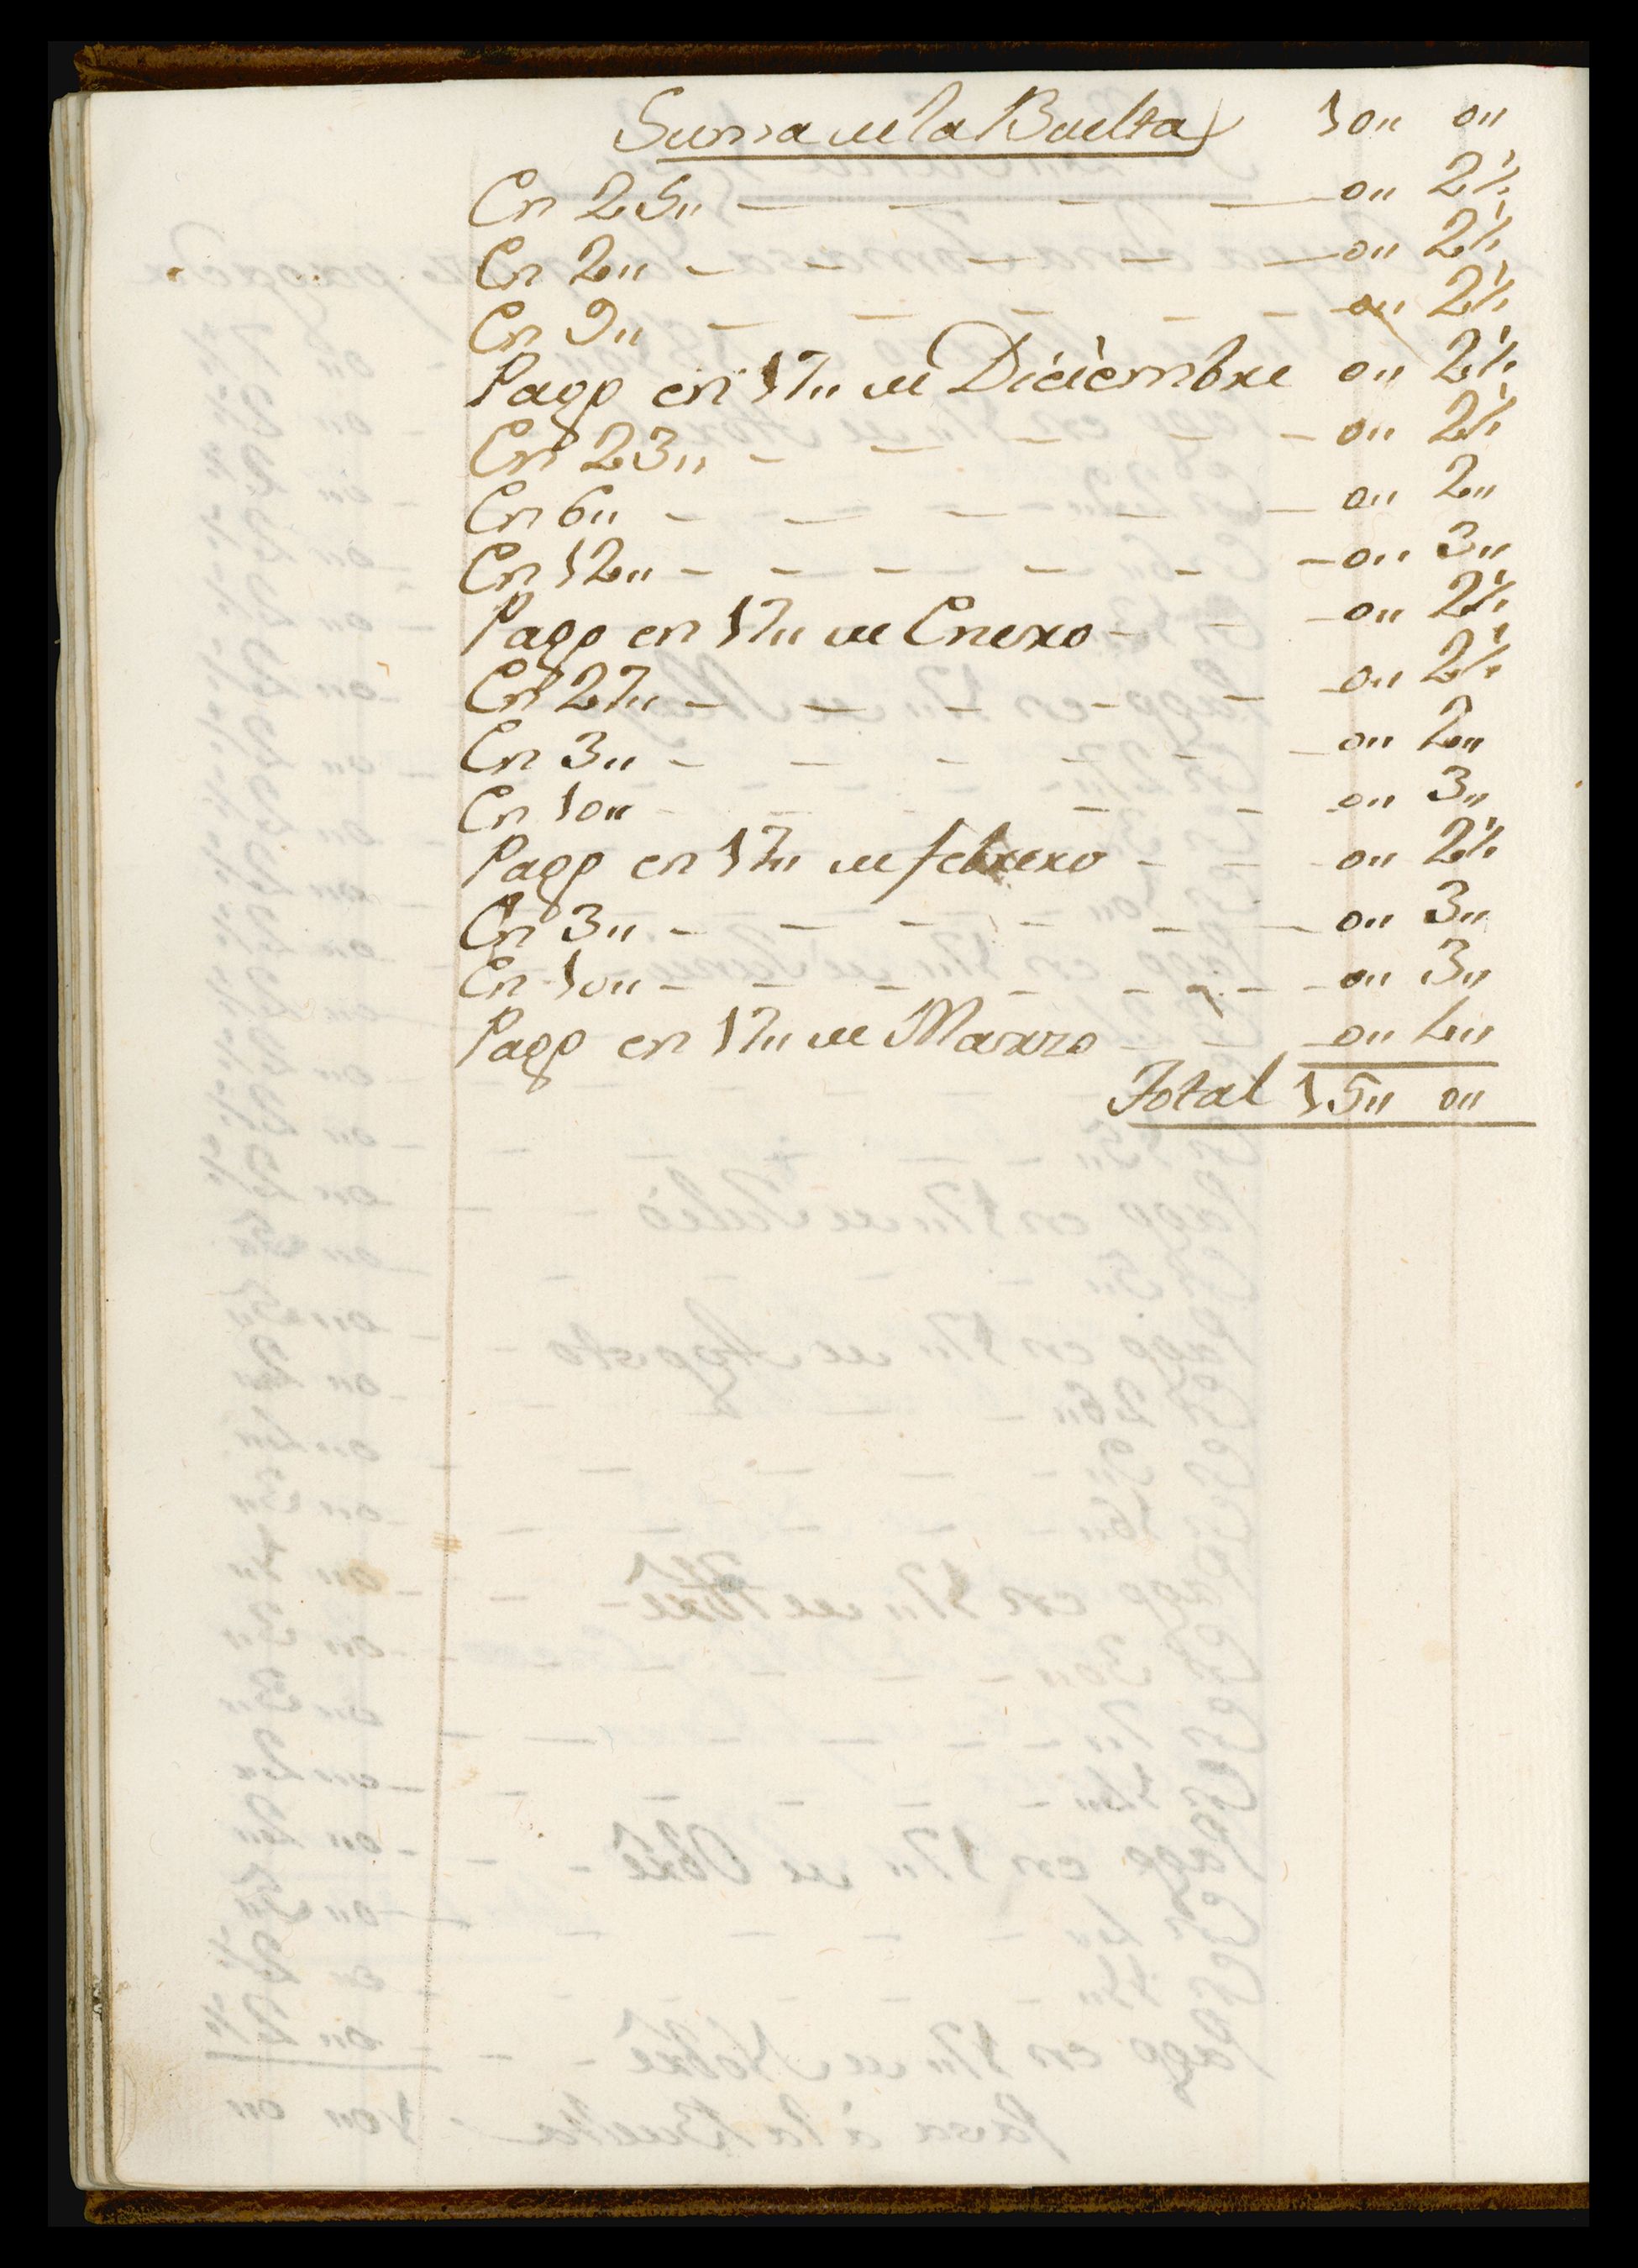 Suma de la Buelta 10,, 0,,
En 25,, — — — — 0,, 2½
En 2,, — — — — — 0,, 2½
En 9,, — — — — — 0,, 2½
Pago en 17,, de Diciembre 0,, 2½
En 23,, — — — — — 0,, 2½
En 6,, — — — — — — 0,, 2,,
En 12,, — — — — — — 0,, 3,,
Pago en 17,, de Enero — — — 0,, 2½
En 27,, — — — — — — 0,, 2½
En 3,, — — — — — — 0,, 2,,
En 10,, — — — 0,, 3,,
Pago en 17,, de febrero — — — 0,, 2½
En 3,, — — — — — — 0,, 3,,
En 10,, — — — — — — — — 0,, 3,,
Pago en 17,, de Marzo — — — 0,, 4,,
Total 15,, 0,,